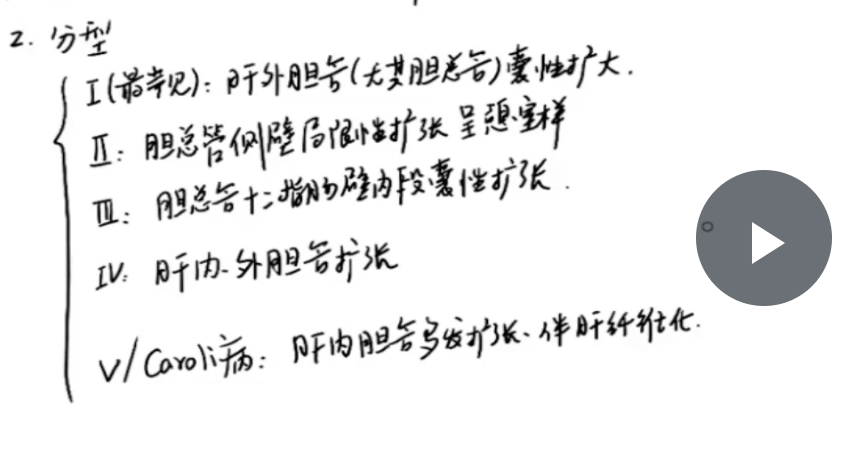 2. 分型
I(最常见): 肝外胆管(尤其胆总管)囊性扩大.
II: 胆总管侧壁局限性扩张 呈憩室样
III: 胆总管十二指肠壁内段囊性扩张.
IV: 肝内、外胆管扩张
V/Caroli病: 肝内胆管多发扩张、伴肝纤维化.